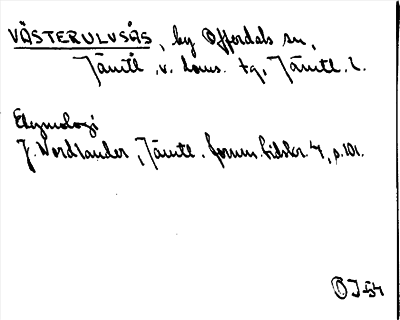 VÄSTERULVSÅS, by Offerdals sn,
Jämtl. v. doms. tg, Jämtl. l.
Etymologi
J. Nordlander, Jämtl. fornm. tidskr. 4, p. 101.
ÖJ 54